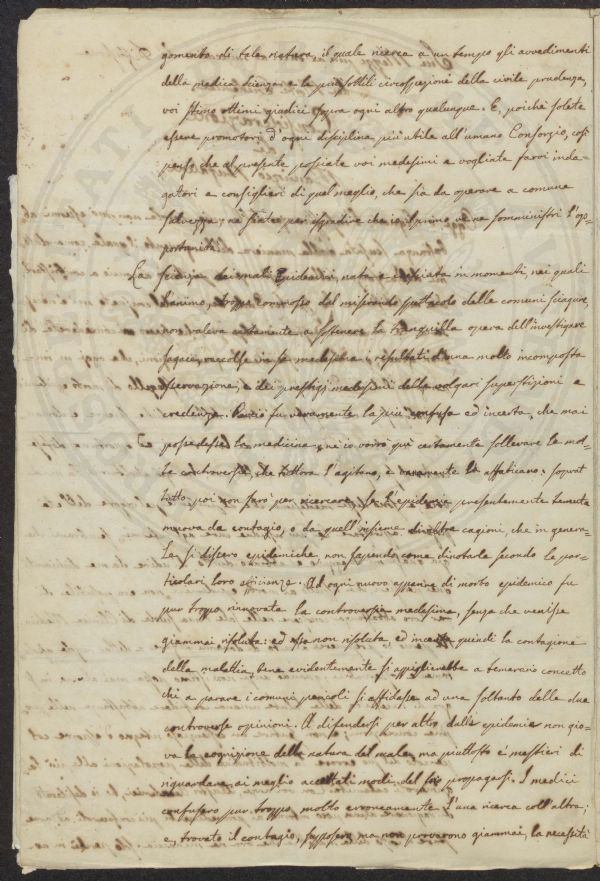 gomento di tale natura, il quale ricerca a un tempo gli avvedimenti
della medica scienza e le più sottili circospezioni della civile prudenza,
voi stimo ottimi giudici sopra ogni altro qualunque. E, poichè solete
essere promotori d'ogni disciplina più utile all'umano Consorzio, così
penso che al presente possiate voi medesimi e vogliate farvi inda-
gatori e consiglieri di quel meglio, che sia da operare a comune
salvezza; nè siate per isgradire che io il primo ve ne somministri l'op-
portunità.
La scienza dei mali Epidemici, nata e in momenti, nei quali
l'animo, troppo commosso dal miserando spettacolo delle comuni sciagure,
non valeva certamente a sostenere la tranquilla opera dell'investigare
sagace, raccolse in se medesima i resultati d'una molto incomposta
osservazione, e dei prestigi medesimi della volgari superstizioni e
credenze. Perciò fu veramente la più confusa ed incerta, che mai
possedesse la medicina; nè io vorrò quì certamente sollevare le mol-
te controversie, che tuttora l'agitano, e vanamente la affaticano: soprat
tutto poi non farò per ricercare, se l'epidemia presentemente temuta
muova da contagio, o da quell'insieme di altre cagioni, che in genera-
le si dissero epidemiche, non sapendo come dinotarle secondo le par-
ticolari loro efficienze. Ad ogni nuovo apparire di morbo epidemico fu
pur troppo rinnovata la controversia medesima, senza che venisse
giammai risoluta: ed essa non risoluta, ed incerta quindi la contagione
della malattia, bene evidentemente si appiglierebbe a temerario concetto
chi a parare i comuni pericoli si affidasse ad una soltanto delle due
controverse opinioni. A difendersi per altro dalle epidemie non gio-
va la cognizione della natura del male, ma piuttosto è mestieri di
riguardare ai meglio accertati modi del suo propagarsi. I medici
confusero pur troppo molto erroneamente l'una ricerca coll'altra;
e, trovato il contagio, supposero ma non provarono giammai, la necessità